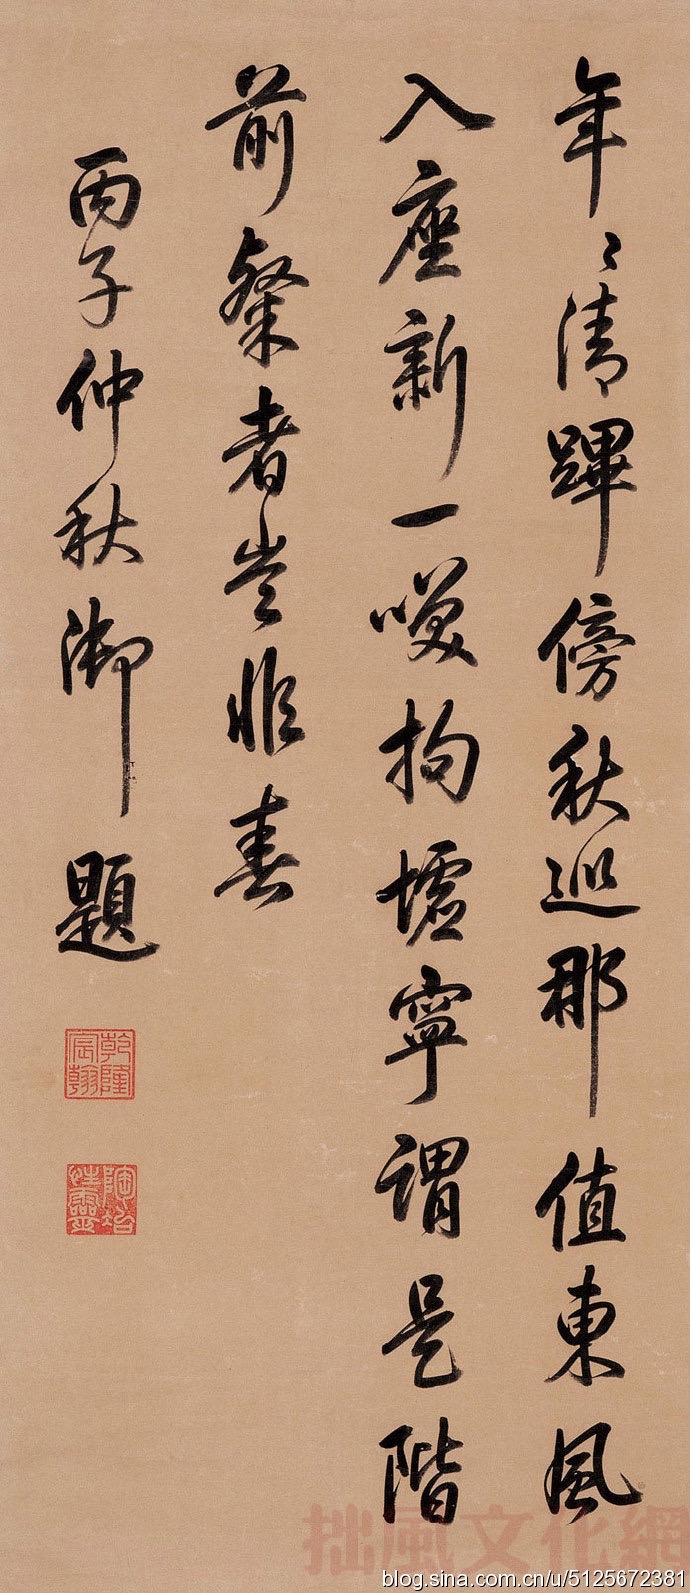 年々清蹕傍秋巡那值東風
入座新一噗拘墟寧謂是階
前粲者豈非春
丙子仲秋御題
乾隆宸翰
陶冶性靈
拙風文化網
blog.sina.com.cn/u/5125672381